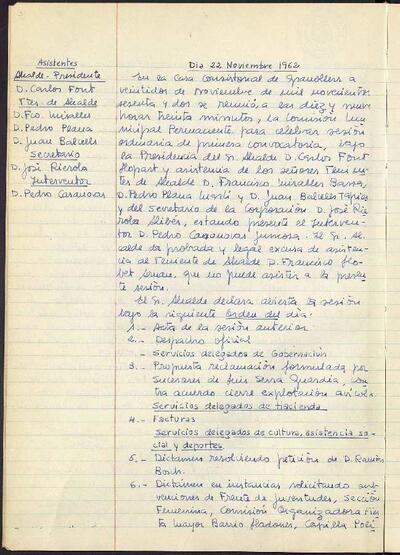 Asistentes
Alcalde-Presidente
D. Carlos Font
Ttes. de Alcalde
D. Fco. Miralles
D. Pedro Plana
D. Juan Balcells
Secretario
D. José Rierola
Interventor
D. Pedro Casanovas
Dia 22 Noviembre 1962
En la Casa Consistorial de Granollers a
veintidos de Noviembre de mil novecientos
sesenta y dos se reunió, a las diez y nueve
horas treinta minutos, la Comisión Mu
nicipal Permanente para celebrar sesión
ordinaria de primera convocatoria, bajo
la Presidencia del Sr. Alcalde D. Carlos Font
Llopart y asistencia de los señores Tenien
tes de Alcalde D. Francisco Miralles Barsa,
D. Pedro Plana y D. Juan Balcells Tapias
y del Secretario de la Corporación D. José Rie
rola Alibés, estando presente el Interven
tor D. Pedro Casanovas. El Sr. Al
calde da probada y legal excusa de asisten
cia al Teniente de Alcalde D. Francisco Llo
bet, que no puede asistir a la presen
te sesión.
El Sr. Alcalde declara abierta la sesión
bajo la siguiente Orden del dia:
1.- Acta de la sesión anterior
2.- Despacho oficial
- Servicios delegados de Gobernación
3.- Propuesta reclamación formulada por
Sucesores de Luis Serra Guardia, con
tra acuerdo cierre explotación avicola.
Servicios delegados de Hacienda
4.- Facturas
Servicios delegados de cultura, asistencia so
cial y deportes
5.- Dictamen resolviendo petición de D. Ramón
Bosch.
6.- Dictámen en instancias solicitando sub
venciones de Frente de Juventudes, Sección
Femenina, Comisión Organizadora Fies
ta mayor Barrio Hadones, Capilla Poli